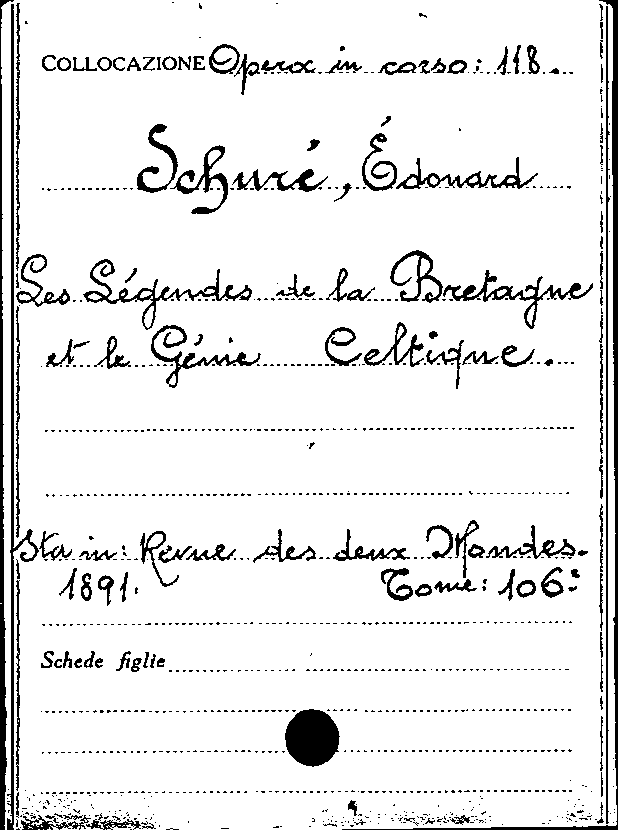 COLLOCAZIONE Opera in corso: 118.
Schuré, Édouard
Les Légendes de la Bretagne
et le Génie Celtique.
Sta in: Revue des deux Mondes.
1891. Tome: 106º
Schede figlie